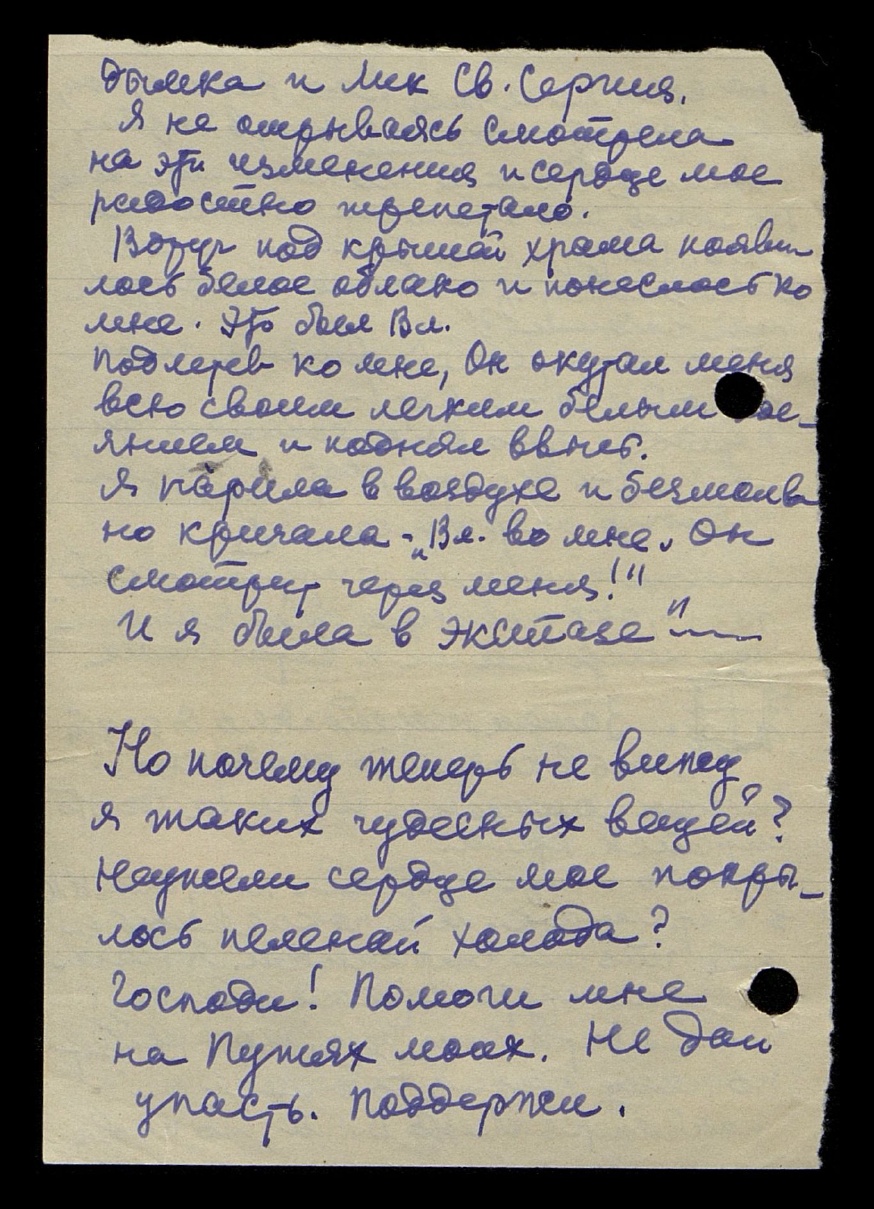 дымка и лик Св. Сергия.
Я не отрываясь смотрела
на эти изменения и сердце мое
радостно трепетало.
Вдруг под крышей храма появи
лось белое облако и понеслось ко
мне. Это был Вл.
Подлетев ко мне, Он окутал меня
всю своим легким белым
янием и поднял ввысь.
Я парила в воздухе и безмолв
но кричала - „Вл. во мне, Он
смотрит через меня!"
И я была в экстазе"
Но почему теперь не вижу
я таких чудесных вещей?
Неужели сердце мое покры-
лось пеленой холода?
Господи! Помоги мне
на Путях моих. Не дай
упасть. Поддержи.